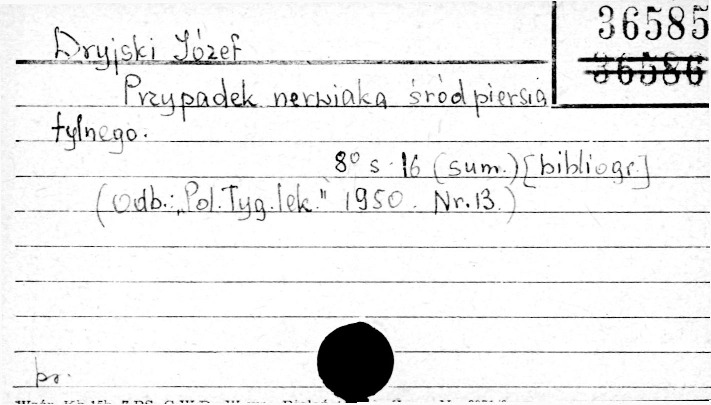 36585
Dryjski Józef
36586
Przypadek nerwiaka śródpiersia
tylnego.
8° s. 16 (sum.) [bibliogr.]
(Odb.: „Pol. Tyg. lek." 1950. Nr. 13.)
br.